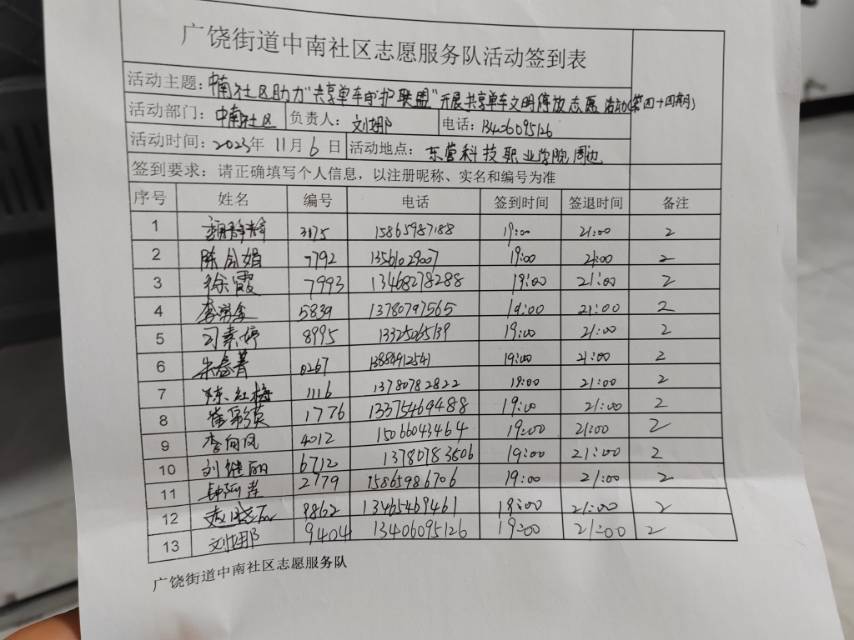 广饶街道中南社区志愿服务队活动签到表
活动主题：中南社区助力“共享单车守护联盟”开展共享单车文明停放志愿活动(第四十四期)
活动部门：中南社区 负责人：刘娜 电话：13406095126
活动时间：2023年11月6日 活动地点：东营科技职业学院周边
签到要求：请正确填写个人信息，以注册昵称、实名和编号为准
序号 姓名 编号 电话 签到时间 签退时间 备注
1 3175 15865987188 19:00 21:00 2
2 陈会娟 7792 13561029007 19:00 21:00 2
3 徐霞 7993 13468278288 19:00 21:00 2
4 5839 13780797565 19:00 21:00 2
5 司素婷 8995 13325065139 19:00 21:00 2
6 朱春菁 0267 13884912541 19:00 21:00 2
7 陈红梅 1116 13780782822 19:00 21:00 2
8 1776 13375469488 19:00 21:00 2
9 李向凤 4012 15066043464 19:00 21:00 2
10 刘继丽 6712 13780783506 19:00 21:00 2
11 2779 15865986706 19:00 21:00 2
12 赵晓石 9862 13465469461 19:00 21:00 2
13 刘娜 9404 13406095126 19:00 21:00 2
广饶街道中南社区志愿服务队